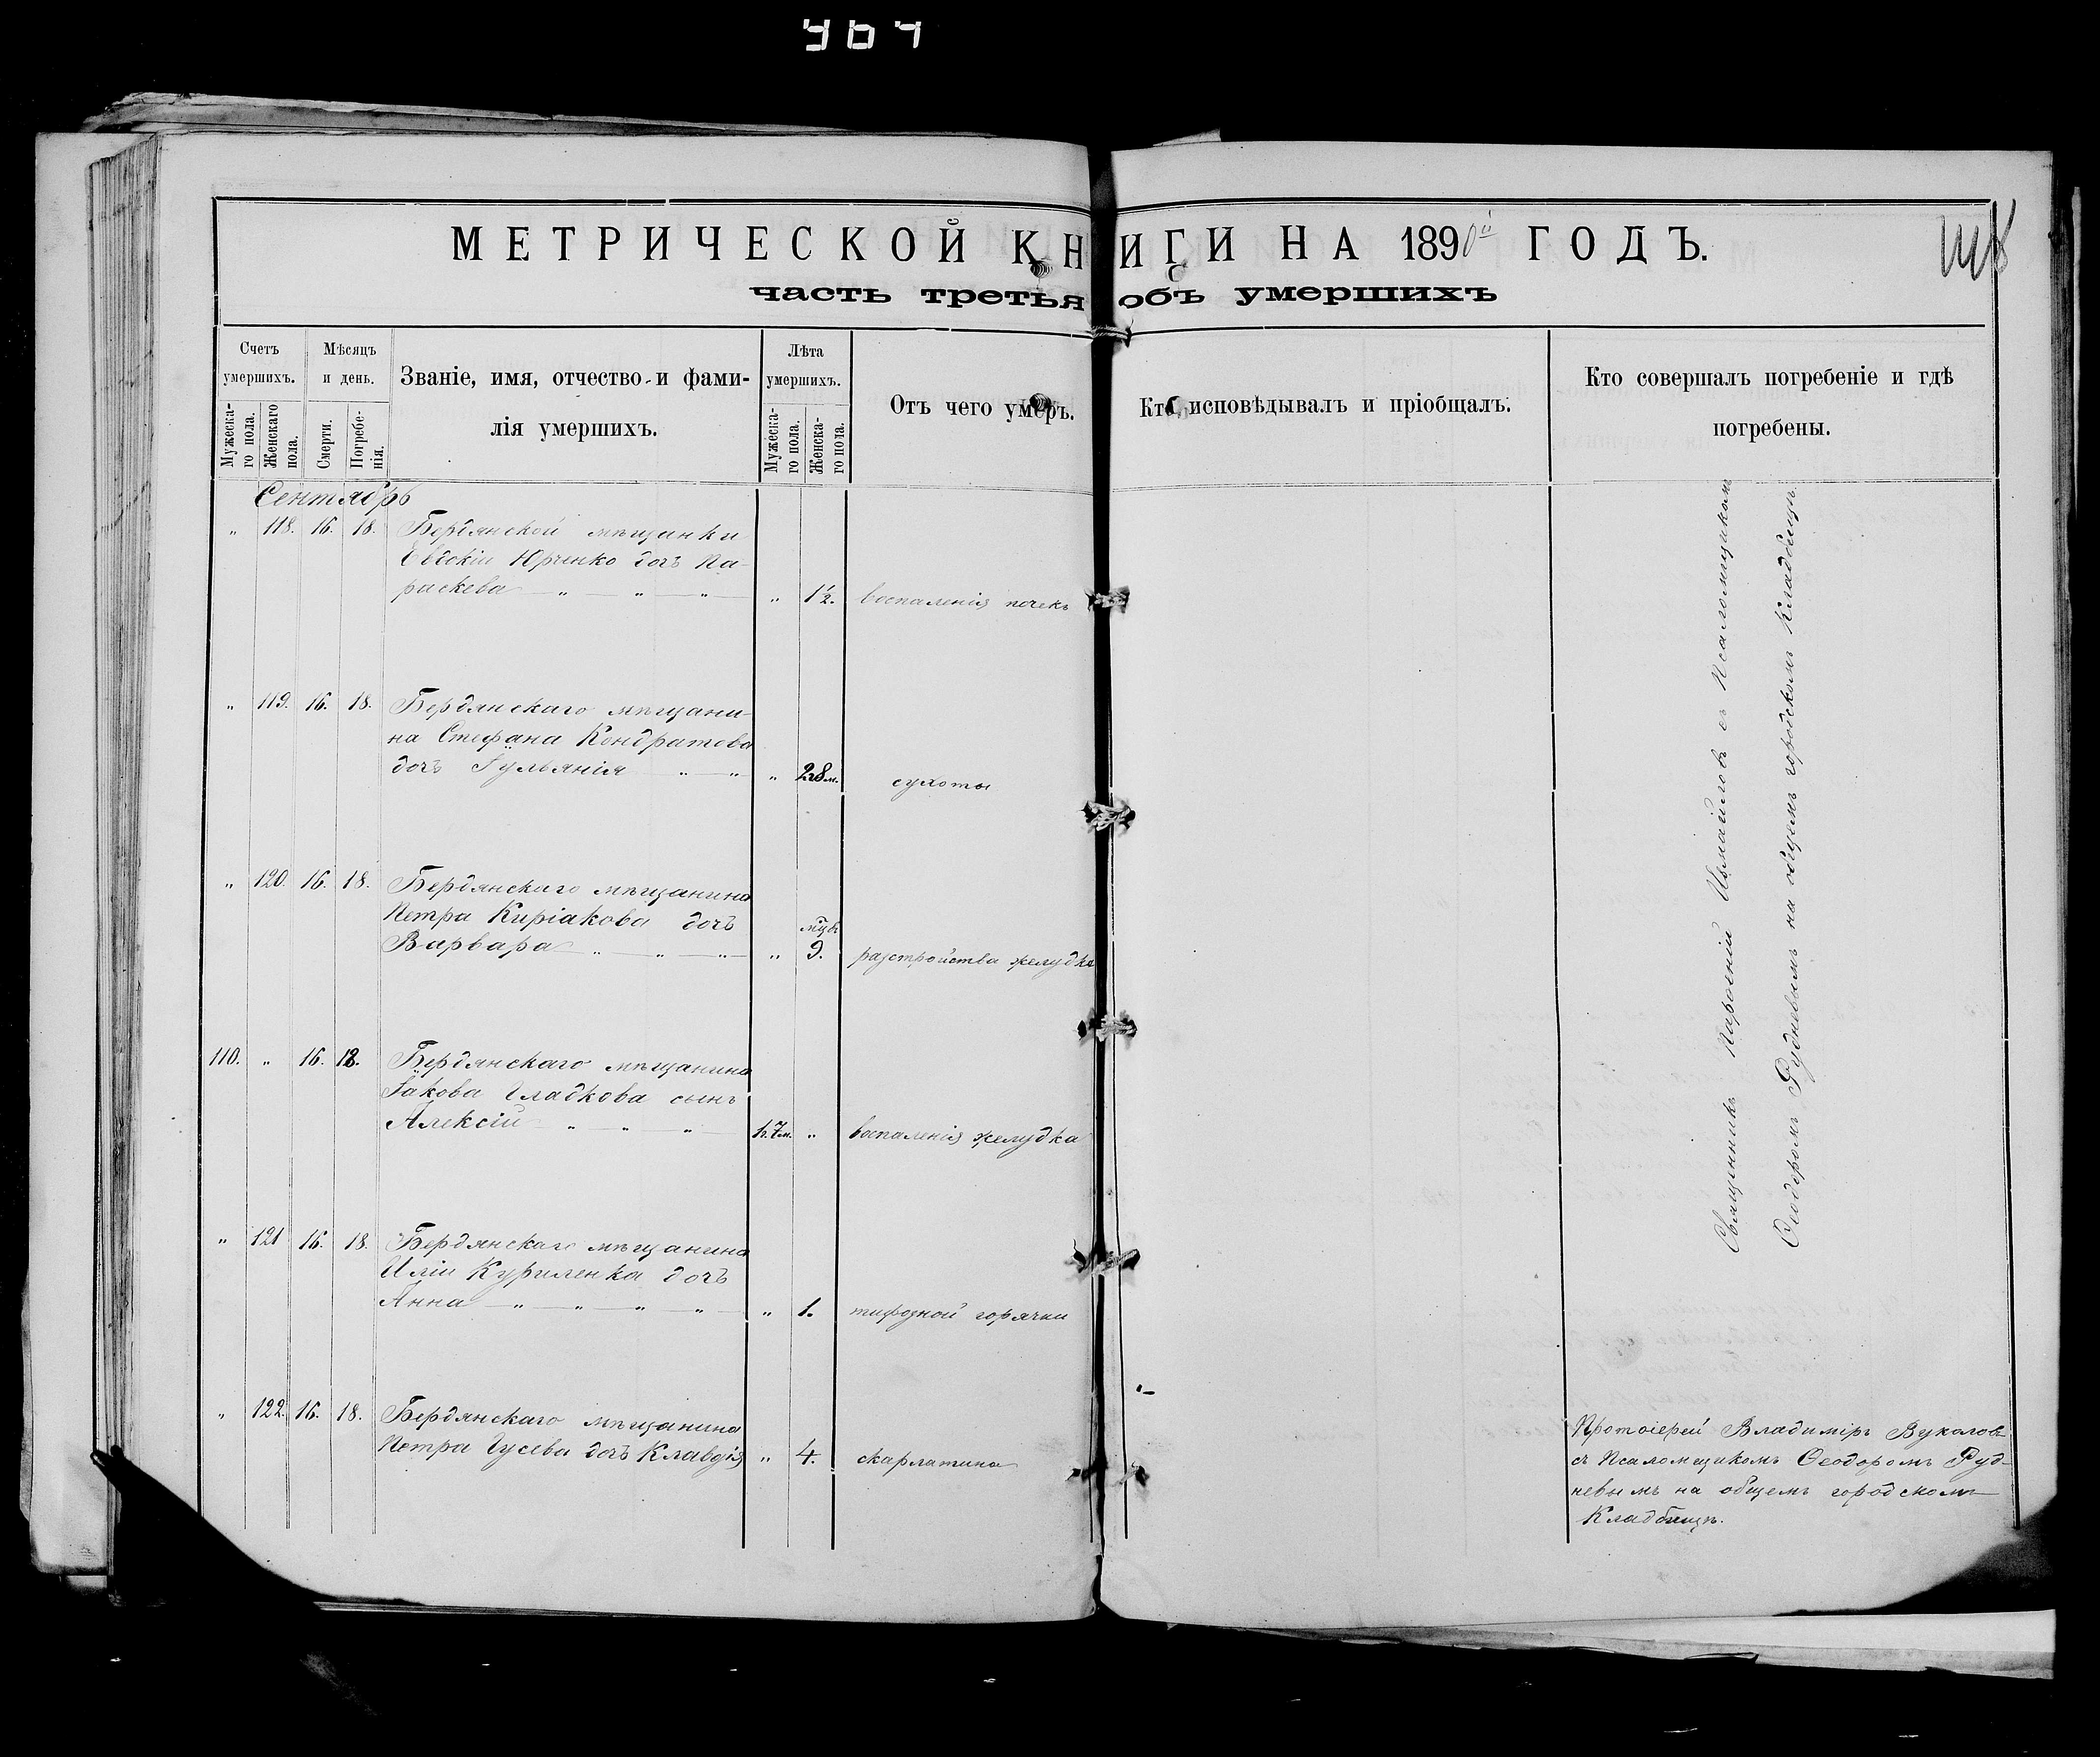 МЕТРИЧЕСКОЙ КНИГИ НА 1890й ГОДЪ.
часть третья объ умершихъ
Счетъ умершихъ.
Мужеска-
го пола.
Женскаго
пола.
Мѣсяцъ и день.
Смерти.
Погребе-
нія.
Званіе, имя, отчество и фами-
лія умершихъ.
Лѣта умершихъ.
Мужеска-
го пола.
Женска-
го пола.
Отъ чего умеръ.
Кто исповѣдывалъ и пріобщалъ.
Кто совершалъ погребеніе и гдѣ
погребены.
Сентябрь
„ 118. 16. 18. Бердянской мѣщанки
Евдокіи Юрченко дочь Па-
раскева „ „ „ „ 1½. воспаленія почекъ
„ 119. 16. 18. Бердянскаго мѣщани-
на Стефана Кондратова
дочь Іульянія „ „ „ 2г8м. сухоты
„ 120. 16. 18. Бердянскаго мѣщанина
Петра Киріакова дочь
Варвара „ „ „ „ мѣс. 9. разстройства желудка
110. „ 16. 18. Бердянскаго мѣщанина
Іакова Гладкова сынъ
Алексій „ „ „ 1г.7м. „ воспаленія желудка
„ 121 16. 18. Бердянскаго мѣщанина
Иліи Куриленка дочь
Анна „ „ „ „ „ 1. тифозной горячки
„ 122. 16. 18. Бердянскаго мѣщанина
Петра Гусева дочь Клавдія „ 4. скарлатина
Священникъ Парѳеній Измайловъ съ Псаломщикомъ
Ѳеодоромъ Рудневымъ на общемъ городскомъ Кладбищѣ.
Протоіерей Владиміръ Вуколовъ
съ Псаломщикомъ Ѳеодоромъ Руд-
невымъ на общемъ городскомъ
Кладбищѣ.